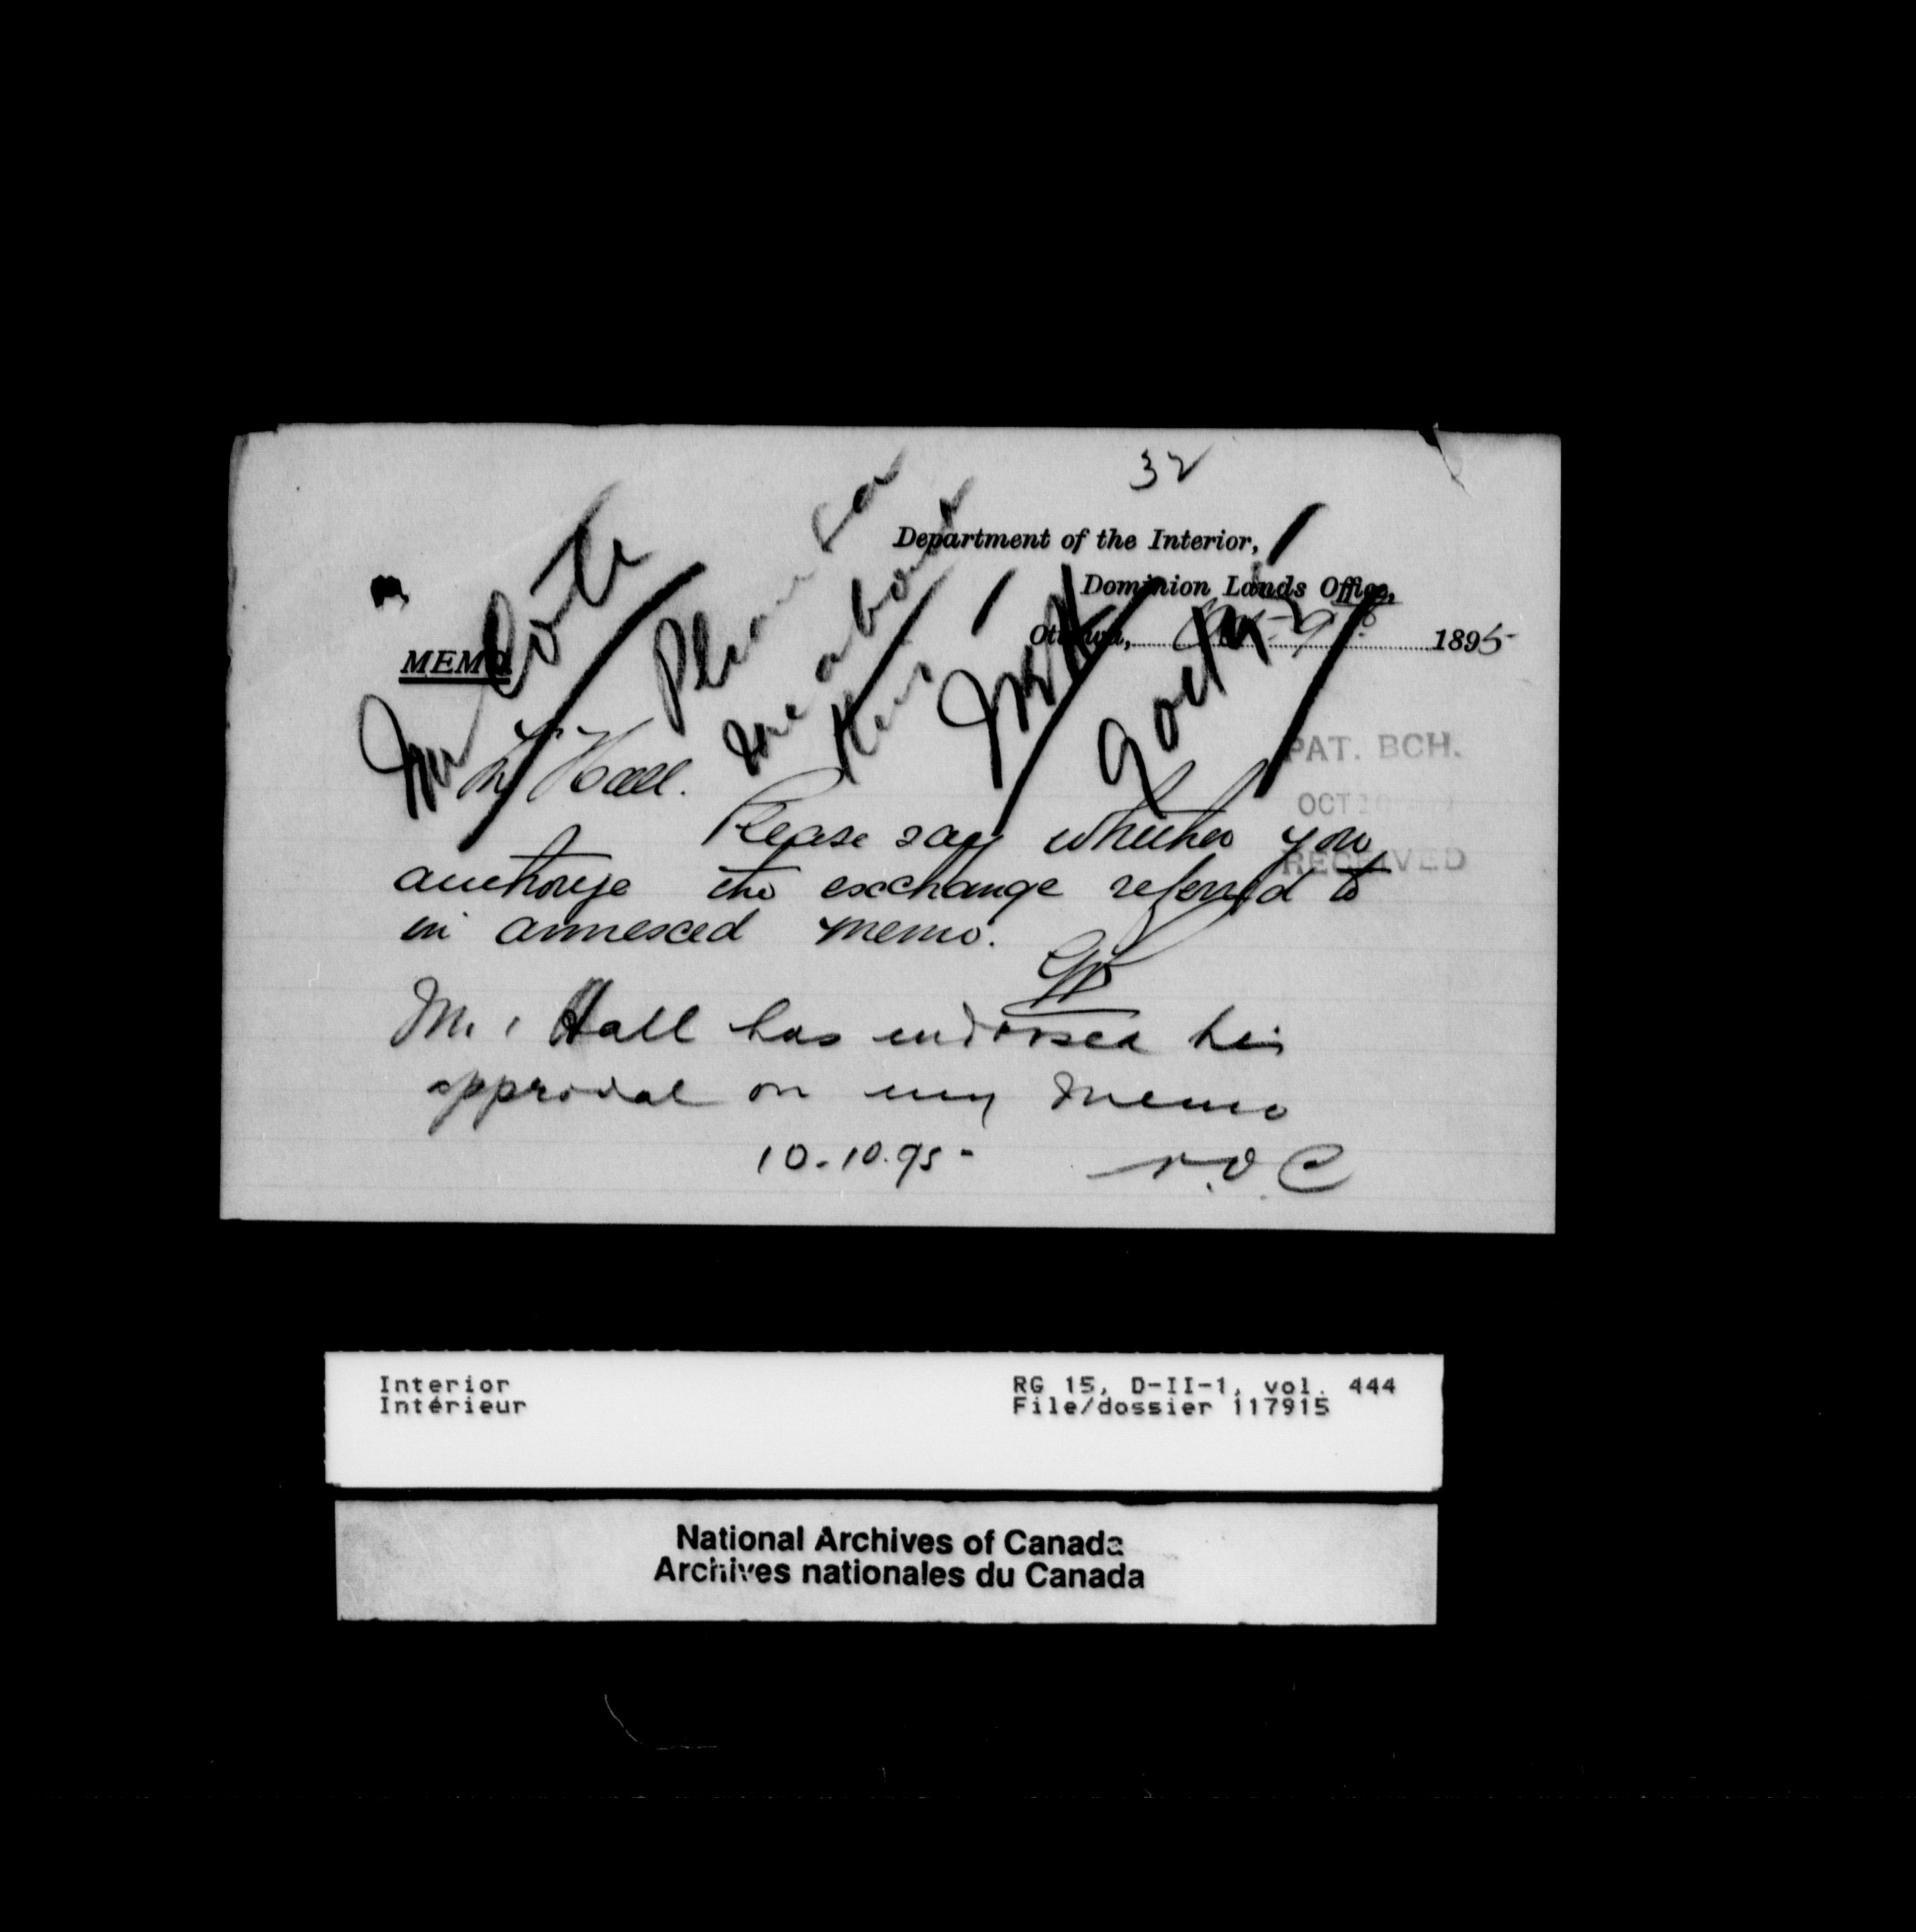 32
Department of the Interior,
Dominion Lands Office,
Ottawa, Oct 9th 1895
MEMO.
Mr Cote
Please see
me about
this
JRH
9 Oct
Mr Hall.
Please say whether you
authorize the exchange referred to
in annexed memo.
PAT. BCH.
OCT 10
RECEIVED
Mr. Hall has endorsed his
approval on my memo
10.10.95 - N.O.C
Interior
Intérieur
RG 15, D-II-1, vol. 444
File/dossier 117915
National Archives of Canada
Archives nationales du Canada